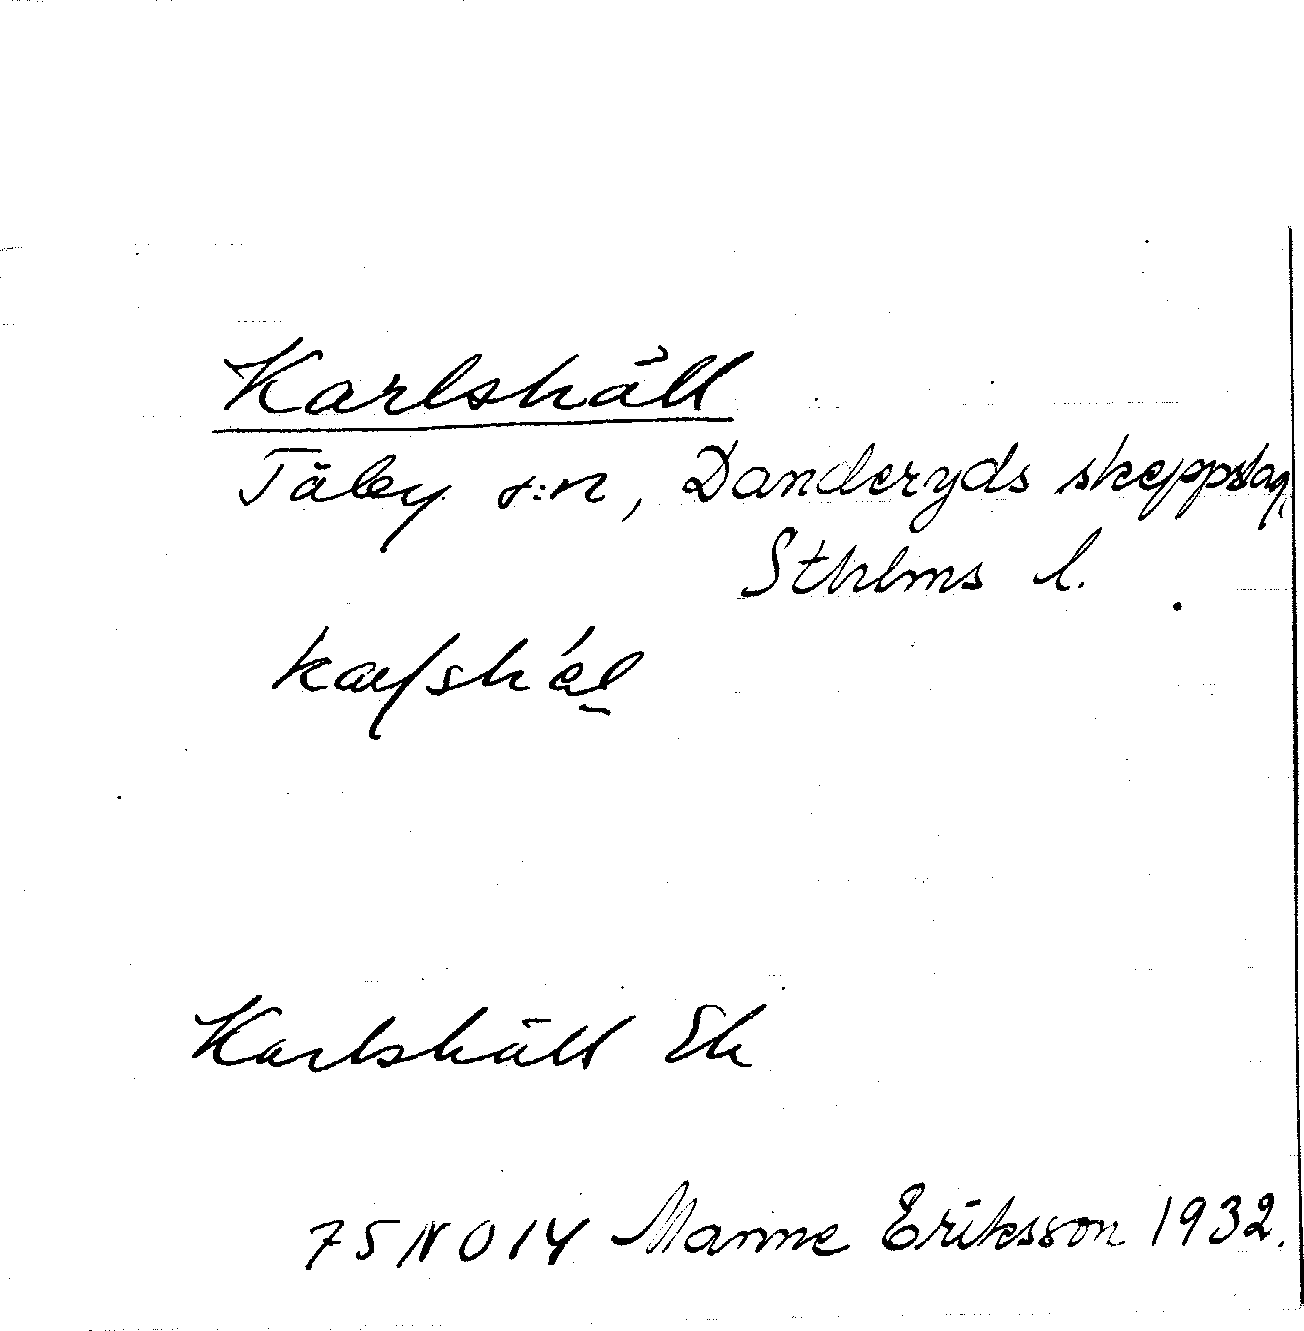 Karlshäll
Täby s:n, Danderyds skeppslag,
Sthlms l.
Karlshäll Ek
75 NO 14 Manne Eriksson 1932.